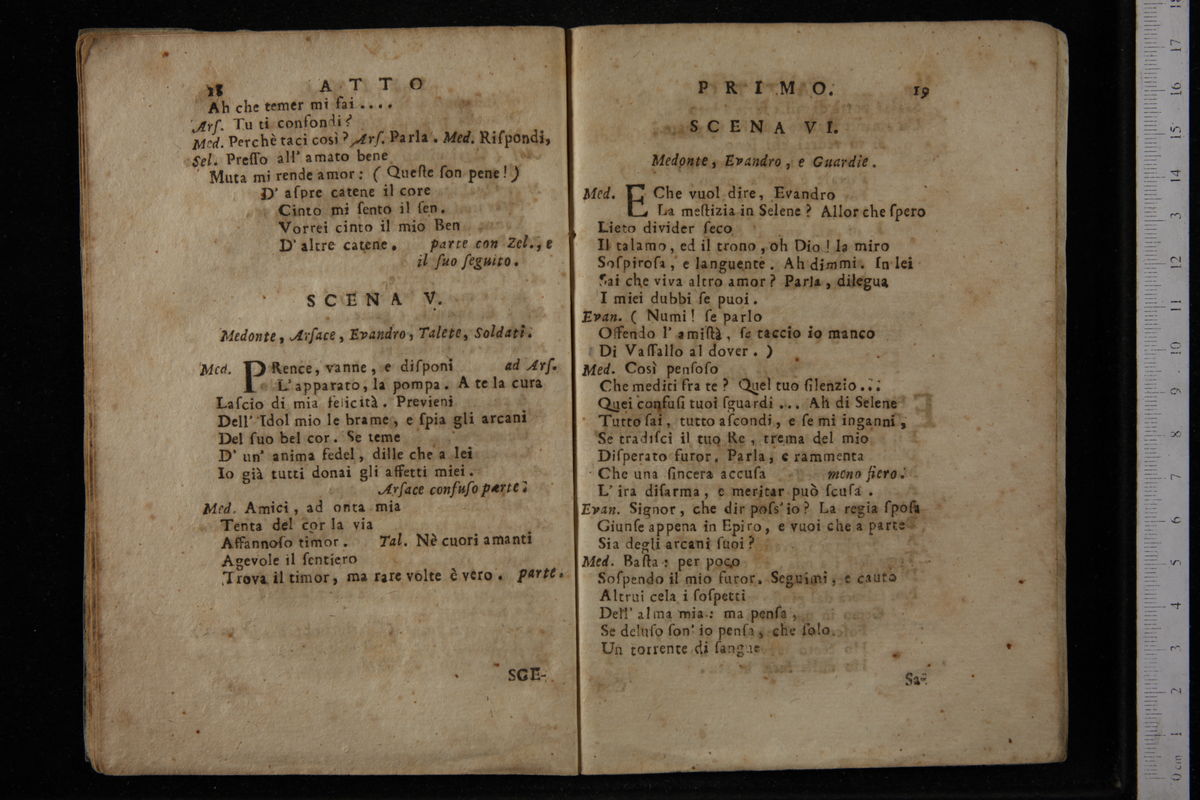 18 ATTO
Ah che temer mi fai ....
Arſ. Tu ti confondi?
Med. Perchè taci così? Arſ. Parla. Med. Riſpondi,
Sel. Preſſo all' amato bene
Muta mi rende amor: ( Queſte ſon pene! )
D' aſpre catene il core
Cinto mi ſento il ſen.
Vorrei cinto il mio Ben
D' altre catene. parte con Zel., e
il ſuo ſeguito.
SCENA V.
Medonte, Arſace, Evandro, Talete, Soldati.
Med. PRence, vanne, e diſponi ad Arſ.
L' apparato, la pompa. A te la cura
Laſcio di mia felicità. Previeni
Dell' Idol mio le brame, e ſpia gli arcani
Del ſuo bel cor. Se teme
D' un' anima fedel, dille che a lei
Io già tutti donai gli affetti miei.
Arſace confuſo parte.
Med. Amici, ad onta mia
Tenta del cor la via
Affannoſo timor. Tal. Nè cuori amanti
Agevole il ſentiero
Trova il timor, ma rare volte è vero. parte.
SCE-
PRIMO. 19
SCENA VI.
Medonte, Evandro, e Guardie.
Med. E Che vuol dire, Evandro
La meſtizia in Selene? Allor che ſpero
Lieto divider ſeco
Il talamo, ed il trono, oh Dio! la miro
Soſpiroſa, e languente. Ah dimmi. In lei
Sai che viva altro amor? Parla, dilegua
I miei dubbi ſe puoi.
Evan. ( Numi! ſe parlo
Offendo l' amiſtà, ſe taccio io manco
Di Vaſſallo al dover. )
Med. Così penſoſo
Che mediti fra te? Quel tuo ſilenzio...
Quei confuſi tuoi ſguardi ... Ah di Selene
Tutto ſai, tutto aſcondi, e ſe mi inganni,
Se tradiſci il tuo Re, trema del mio
Diſperato furor. Parla, e rammenta
Che una ſincera accuſa meno fiero.
L' ira diſarma, e meritar può ſcuſa.
Evan. Signor, che dir poſs' io? La regia ſpoſa
Giunſe appena in Epiro, e vuoi che a parte
Sia degli arcani ſuoi?
Med. Baſta: per poco
Soſpendo il mio furor. Seguimi, e cauto
Altrui cela i ſoſpetti
Dell' alma mia: ma penſa,
Se deluſo ſon' io penſa, che ſolo
Un torrente di ſangue
Sa-